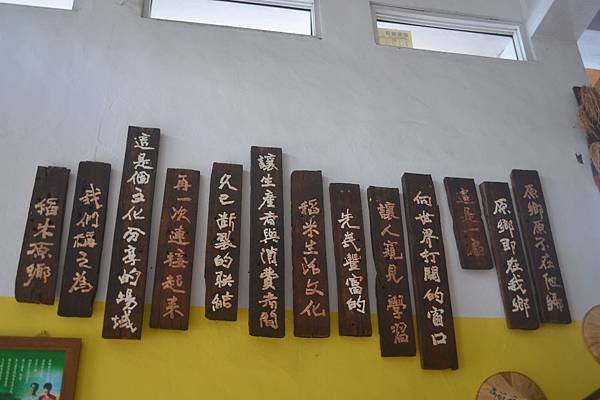 原鄉原不在他鄉
原鄉即在我鄉
這是一扇
向世界打開的窗口
讓人窺見 學習
先民豐富的
稻米生活文化
讓生產者與消費者間
久已斷裂的聯結
再一次連接起來
這是個文化分享的場域
我們稱之為
稻米原鄉